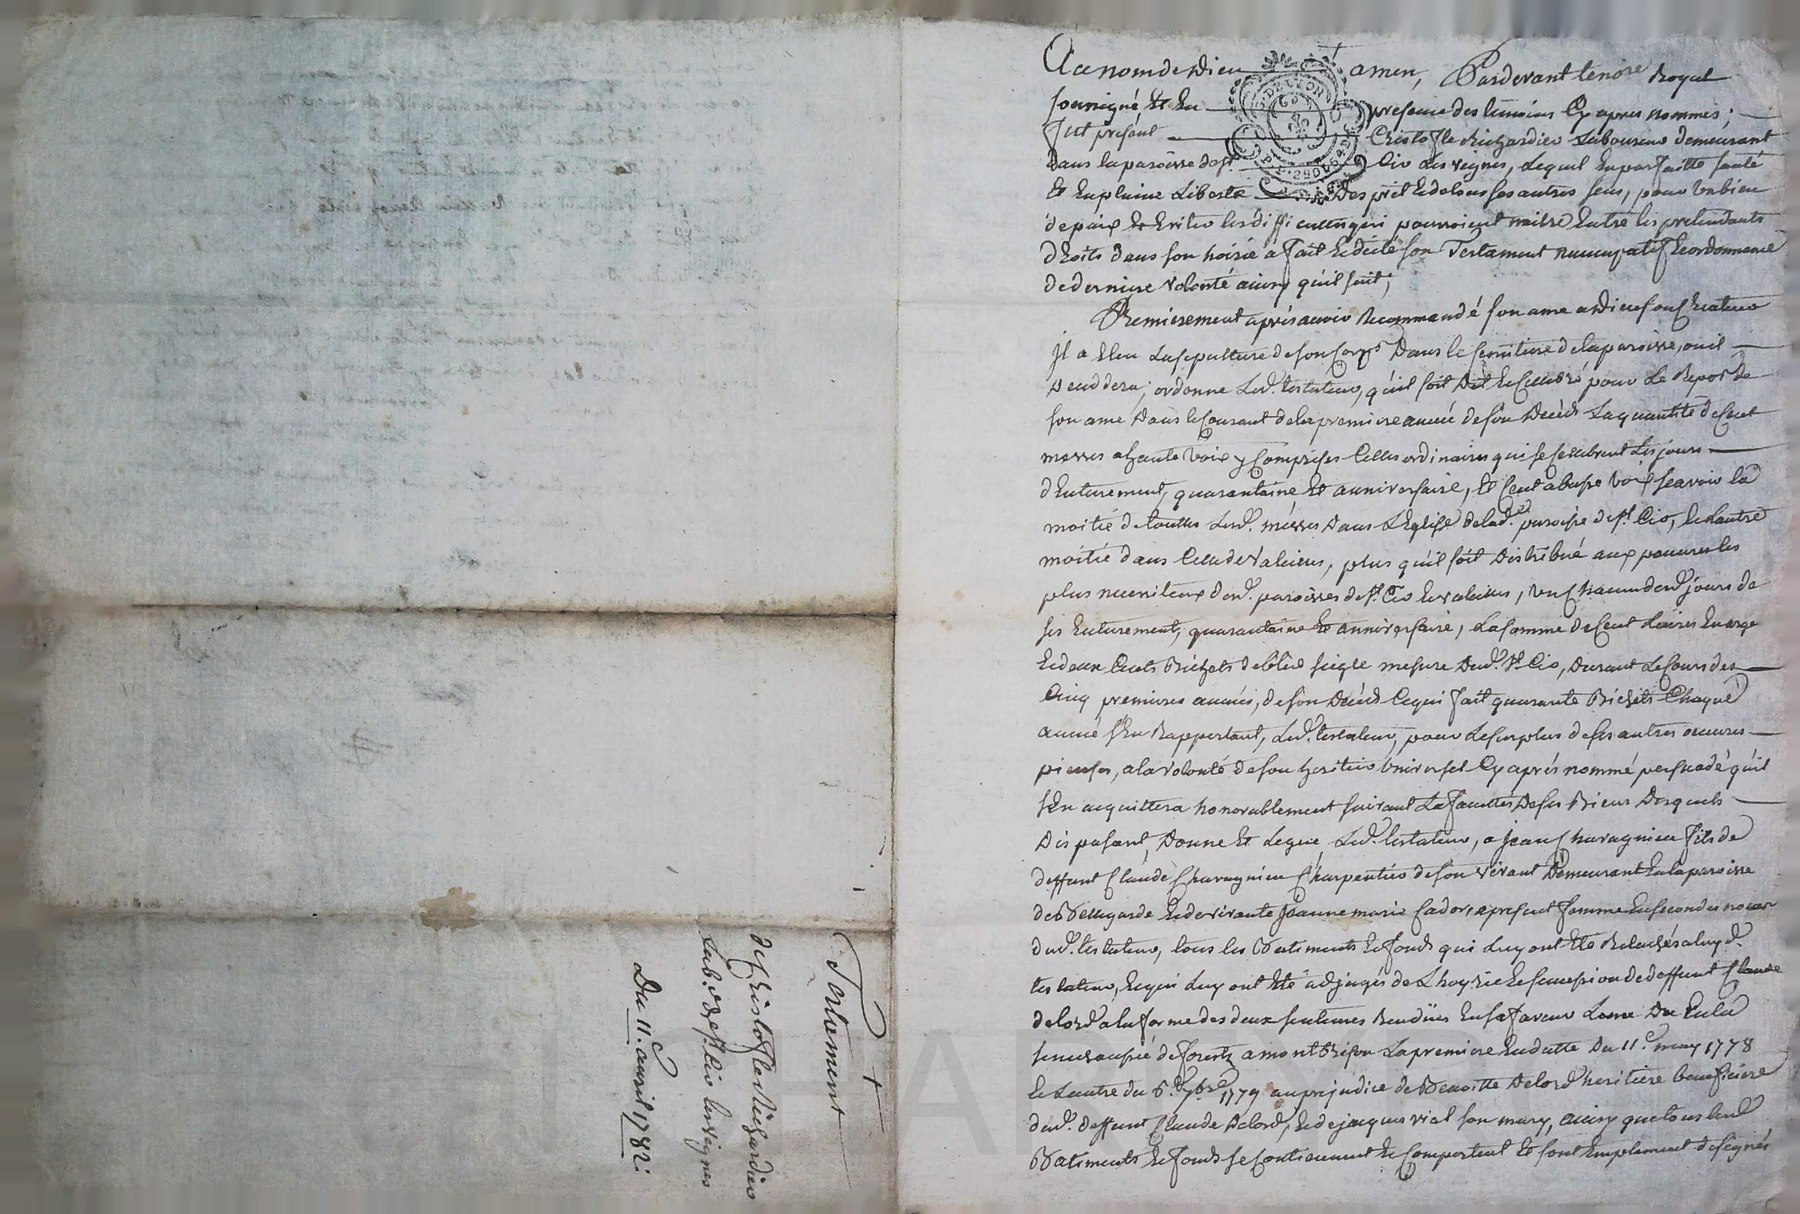 Testament
de Christofle Richardier
Lab.r de St. Cir les vignes
Du 11.e avril 1782.
Au nom de Dieu amen, Pardevant le no.re Royal
soussigné Et En presence des temoins Cy apres nommés;
fut présent Christofle Richardier Laboureur demeurant
dans la paroisse de St. Cir les vignes, Lequel En parfaitte santé
Et En plaine Liberté D'esprit Et de tous ses autres sens, pour un bien
de paix Et Eviter les difficultés qui pourroient naitre Entre les pretendants
droits dans son hoirie a fait Et dicté son Testament nuncupatif Et ordonnance
de derniere volonté ainsy qu'il suit;
Premierement après avoir Recommandé son ame a Dieu son Créateur
Il a Eleu La sepulture de son Corps Dans le Cemitiere de la paroisse, ou il
Deceddera; ordonne Led. testateur, qu'il soit Dit Et Cellebré pour Le Repos de
son ame Dans le Courant de la premiere année de son Décéds La quantité de Cent
messes a haute voix y Comprises Celles ordinaires qui se Cellebrent Les jours
d'Enterrement, quarantaine Et anniversaire, Et Cent a basse voix scavoir la
moitié de touttes Lesd. messes Dans L'Eglise de lad. paroisse de St. Cir, Et L'autre
moitié dans Celle de Valeilles, plus qu'il soit Distribué aux pauvres les
plus necessiteux desd. paroisses de St. Cir Et Valeilles, un Chacun desd. jours de
ses Enterrement, quarantaine Et anniversaire, La somme de Cent Livres En arge
Et deux Cents Bichets de bled seigle mesure dud. St. Cir, Durant Le Cours des
Cinq premieres années, de son Décéds Ce qui fait quarante Bichets Chaque
année s'En Rapportant, Led. testateur, pour Le surplus de ses autres oeuvres
pieuses, a la volonté de son heritier Universel Cy après nommé persuadé qu'il
s'En acquittera honorablement suivant La faculté De ses Biens Desquels
Disposant, Donne Et Legue Led. testateur, a Jean Charagnieu fils de
deffunt Claude Charagnieu Charpentier de son vivant Demeurant En la paroisse
de Bellegarde Et de vivante Jeanne marie Cador, a present femme En secondes noces
dud. testateur, tous les Batiments Et fonds qui Luy ont Eté Relachés a luy d.
testateur, Et qui Luy ont Eté adjugés de L'hoyrie Et succession de deffunt Claude
Delord a la forme des deux sentences Rendües En sa faveur
senechaussée de forestz a montbrison La premiere En datte Du 11.e may 1778
Et L'autre du 6.e 7bre 1779 au prejudice de Benoitte Delord heritiere beneficiere
dud. deffunt Claude Delord, Et de jacques vial son mary, ainsy que tous lesd.
Batiments Et fonds se Contiennent Et Comportent Et sont Emplement desígnés